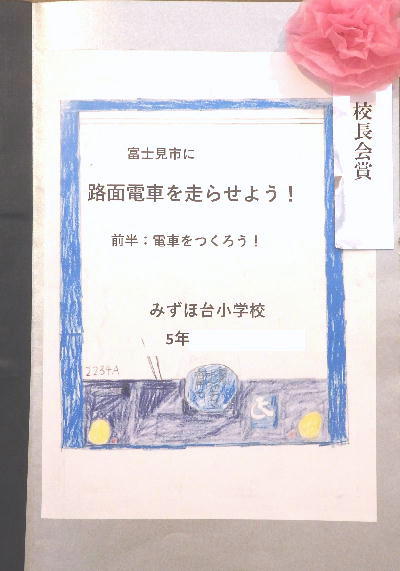 校長会賞
富士見市に
路面電車を走らせよう！
前半：電車をつくろう！
みずほ台小学校
5年
2234A